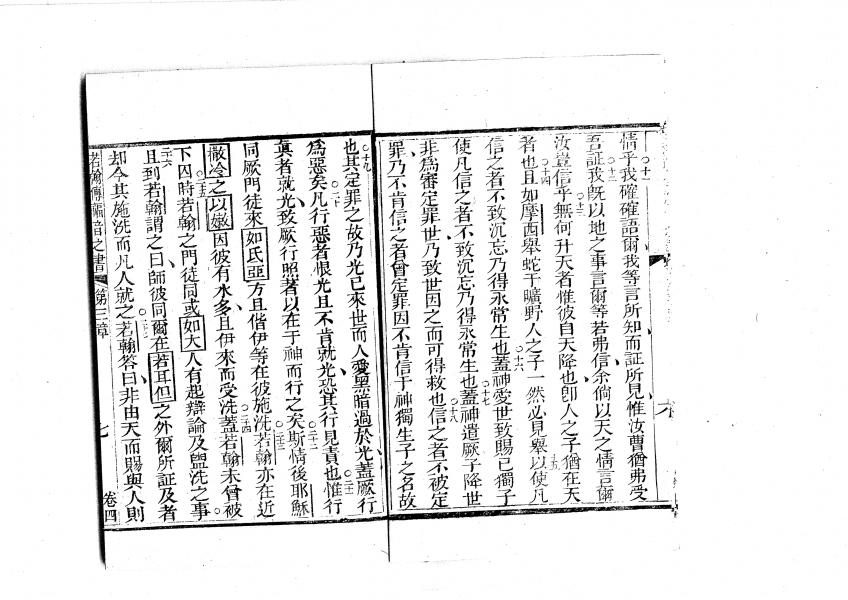 情乎我確確語爾我等言所知而証所見惟汝曹猶弗受
吾証我旣以地之事言爾等若弗信余倘以天之情言爾
汝豈信乎無何升天者惟彼自天降也卽人之子猶在天
者也且如摩西舉蛇于曠野人之子一然必見舉以使凡
信之者不致沉忘乃得永常生也蓋神愛世致賜已獨子
使凡信之者不致沉忘乃得永常生也蓋神遣厥子降世
非爲審定罪世乃致世因之而可得救也信之者不被定
罪乃不肯信之者曾定罪因不肯信于神獨生子之名故
也其定罪之故乃光已來世而人愛黑暗過於光蓋厥行
爲惡矣凡行惡者恨光且不肯就光恐其行見責也惟行
眞者就光致厥行照著以在于神而行之矣斯情後耶穌
同厥門徒來如氐亞方且偕伊等在彼施洗若翰亦在近
撒冷之以嫰因彼有水多且伊來而受洗蓋若翰未曾被
下囚時若翰之門徒同或如大人有起辯論及盥洗之事
且到若翰謂之曰師彼同爾在若耳但之外爾所証及者
却今其施洗而凡人就之若翰答曰非由天而賜與人則
若翰傳福音之書 第三章 七 卷四